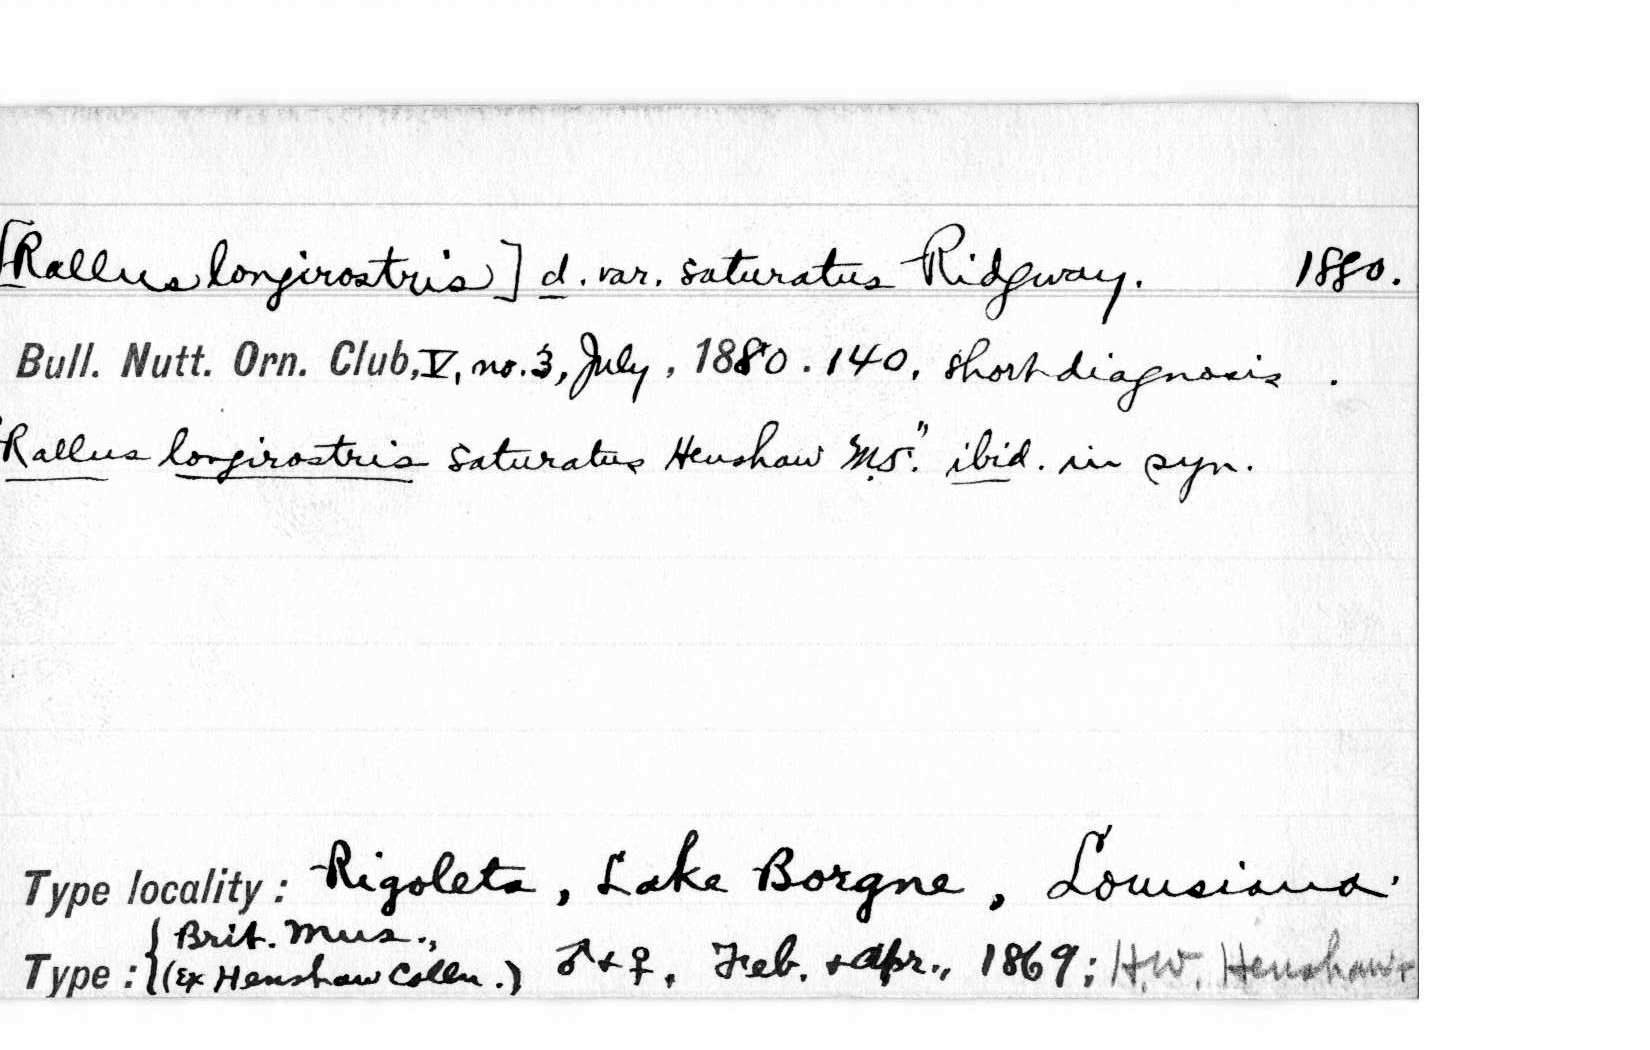 [Rallus longirostris] d. var. saturatus Ridgway. 1880.
Bull. Nutt. Orn. Club, V, no. 3, July, 1880. 140. short diagnosis.
"Rallus longirostris saturatus Henshaw MS." ibid. in syn.
Type locality: Rigolets, Lake Borgne, Louisiana.
{ Brit. Mus.,
Type: { (Ex Henshaw Colln.) ♂ + ♀, Feb. + Apr., 1869; H.W. Henshaw +